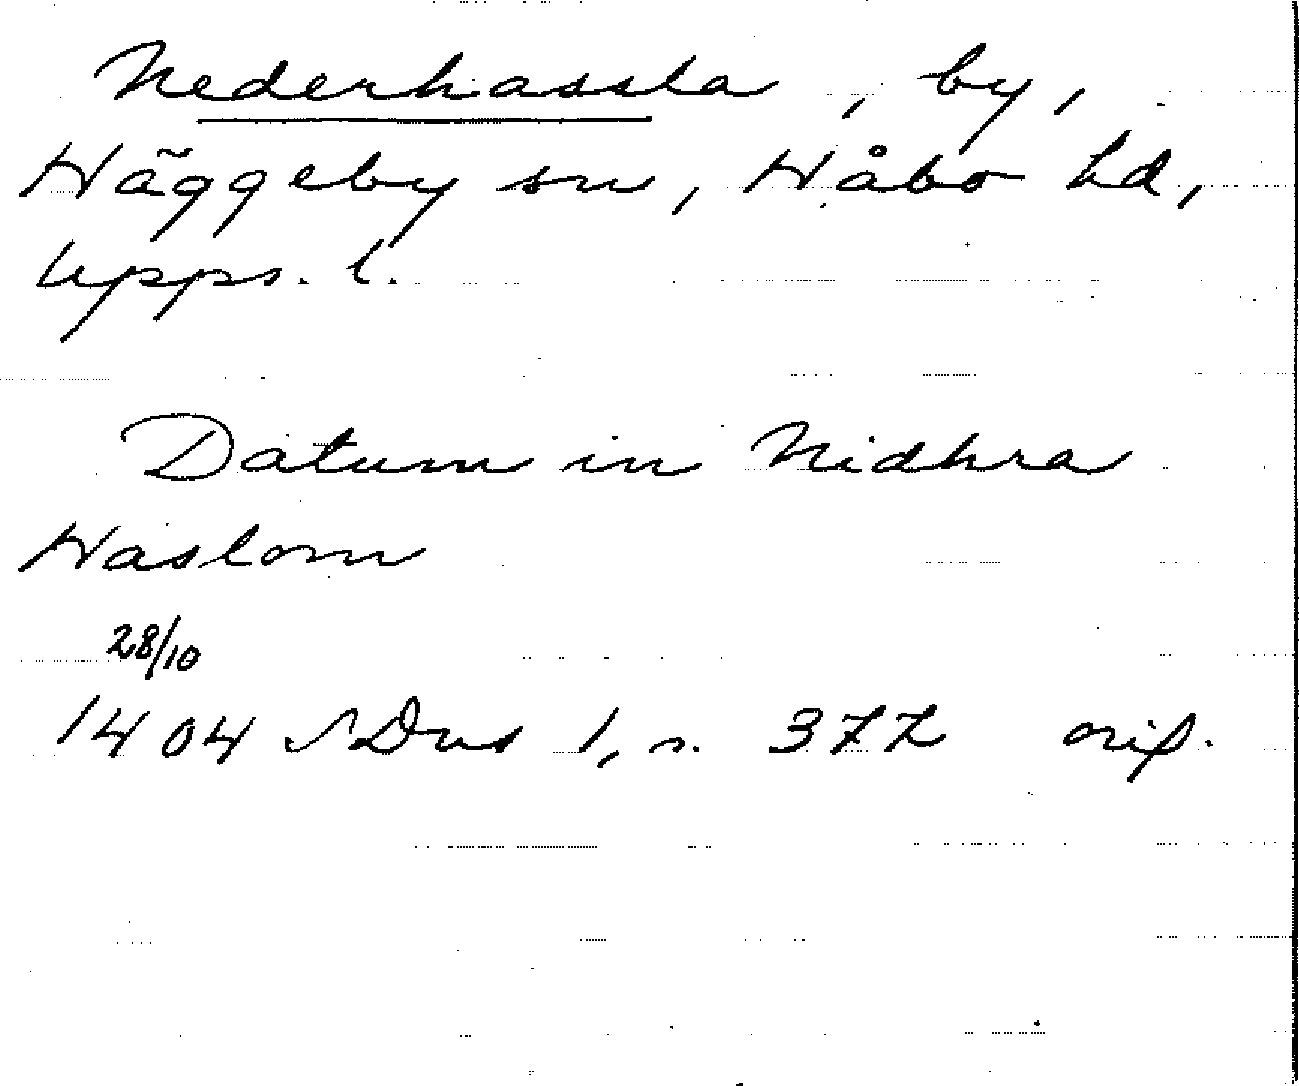 Nederhassla, by,
Häggeby sn, Håbo hd,
Upps. l.
Datum in Nidhra
Haslom
28/10
1404 SDns 1, s. 377 orig.